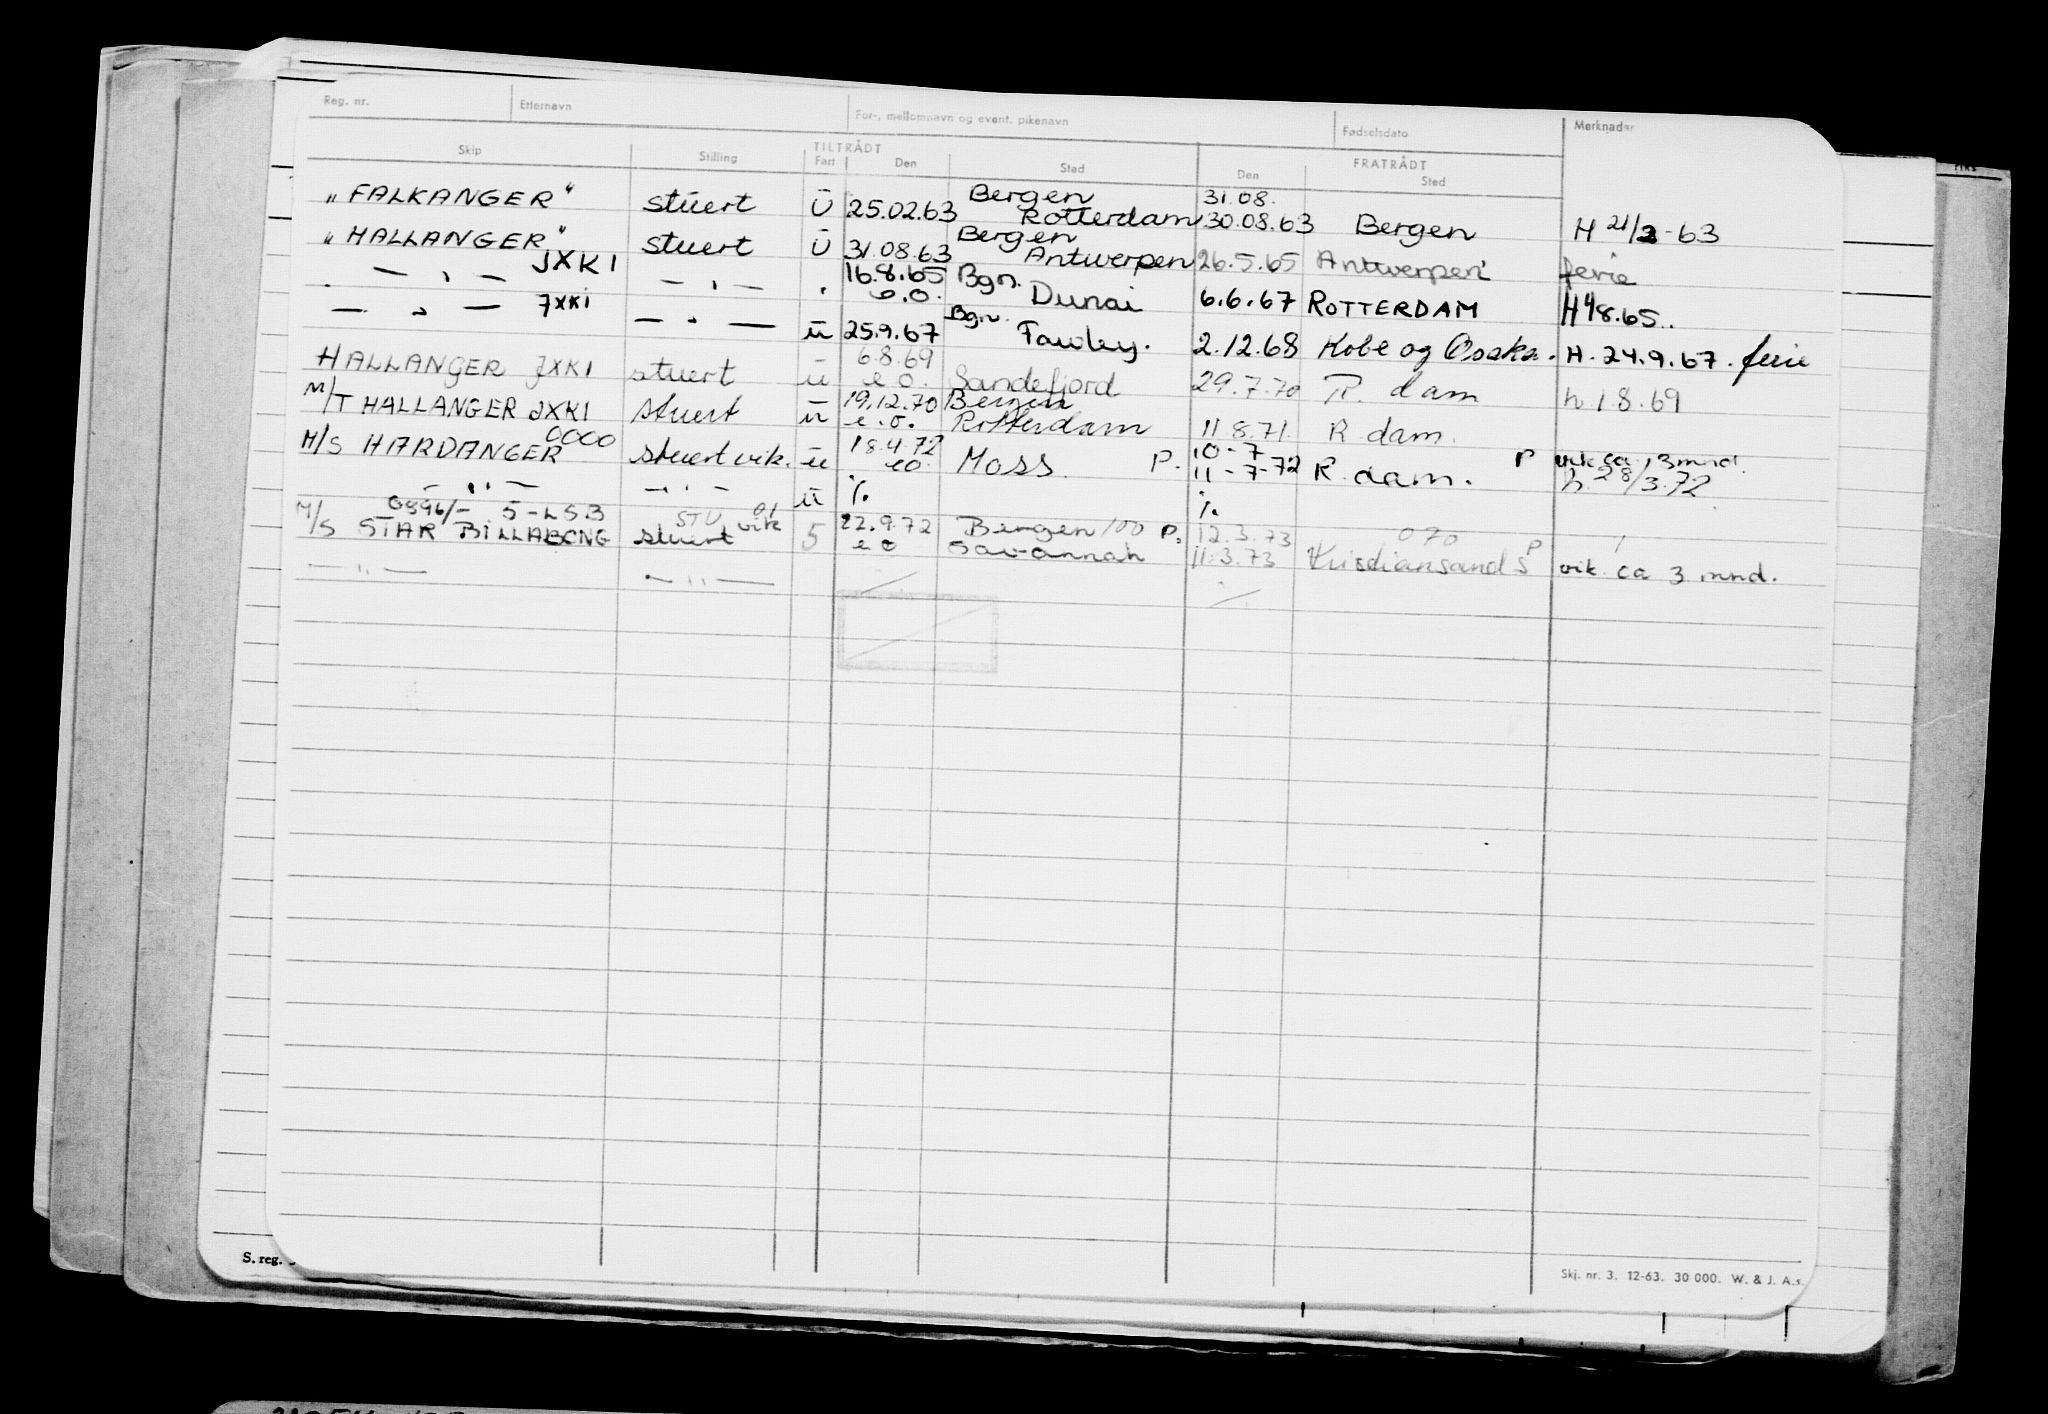 Reg. nr. Etternavn For-, mellomnavn og event. pikenavn Fødselsdato Merknader
Skip Stilling TILTRÅDT Fart Den Sted FRATRÅDT Den Sted
"FALKANGER" stuert Ü 25.02.63 Bergen Rotterdam 31.08. 30.08.63 Bergen H 21/2-63
"HALLANGER" stuert Ü 31.08.63 Bergen Antwerpen 26.5.65 Antwerpen ferie
— " — JXKI — " — " 16.8.65 e.o. Bgn. Dunai 6.6.67 ROTTERDAM H 4/8.65.
— " — JXKI — " — ü 25.9.67 Bgn. Fawley. 2.12.68 Kobe og Osaka. H. 24.9.67. ferie
HALLANGER JXKI stuert ü 6.8.69 e o. Sandefjord 29.7.70 R. dam h. 1.8.69
M/T HALLANGER JXKI stuert ü 19.12.70 e.o. Bergen Rotterdam 11 8.71. R. dam.
M/S HARDANGER 0000 stuert vik. ü 18.4.72 eo. Moss P. 10-7 11-7-72 R. dam. P vik ca. 3 mnd. h. 28/3.72
— " — — " — ü ./. ./.
M/S STAR BILLABONG 0896/- 5-LSB STU 01 stuert vik 5 22.9.72 e o Bergen 100 P. Savannah 12.3.73 11.3.73 070 P Kristiansand S vik ca 3 mnd.
— " — — " — ./. ./.
S. reg.
Skj. nr. 3. 12-63. 30 000. W. & J. A.s.